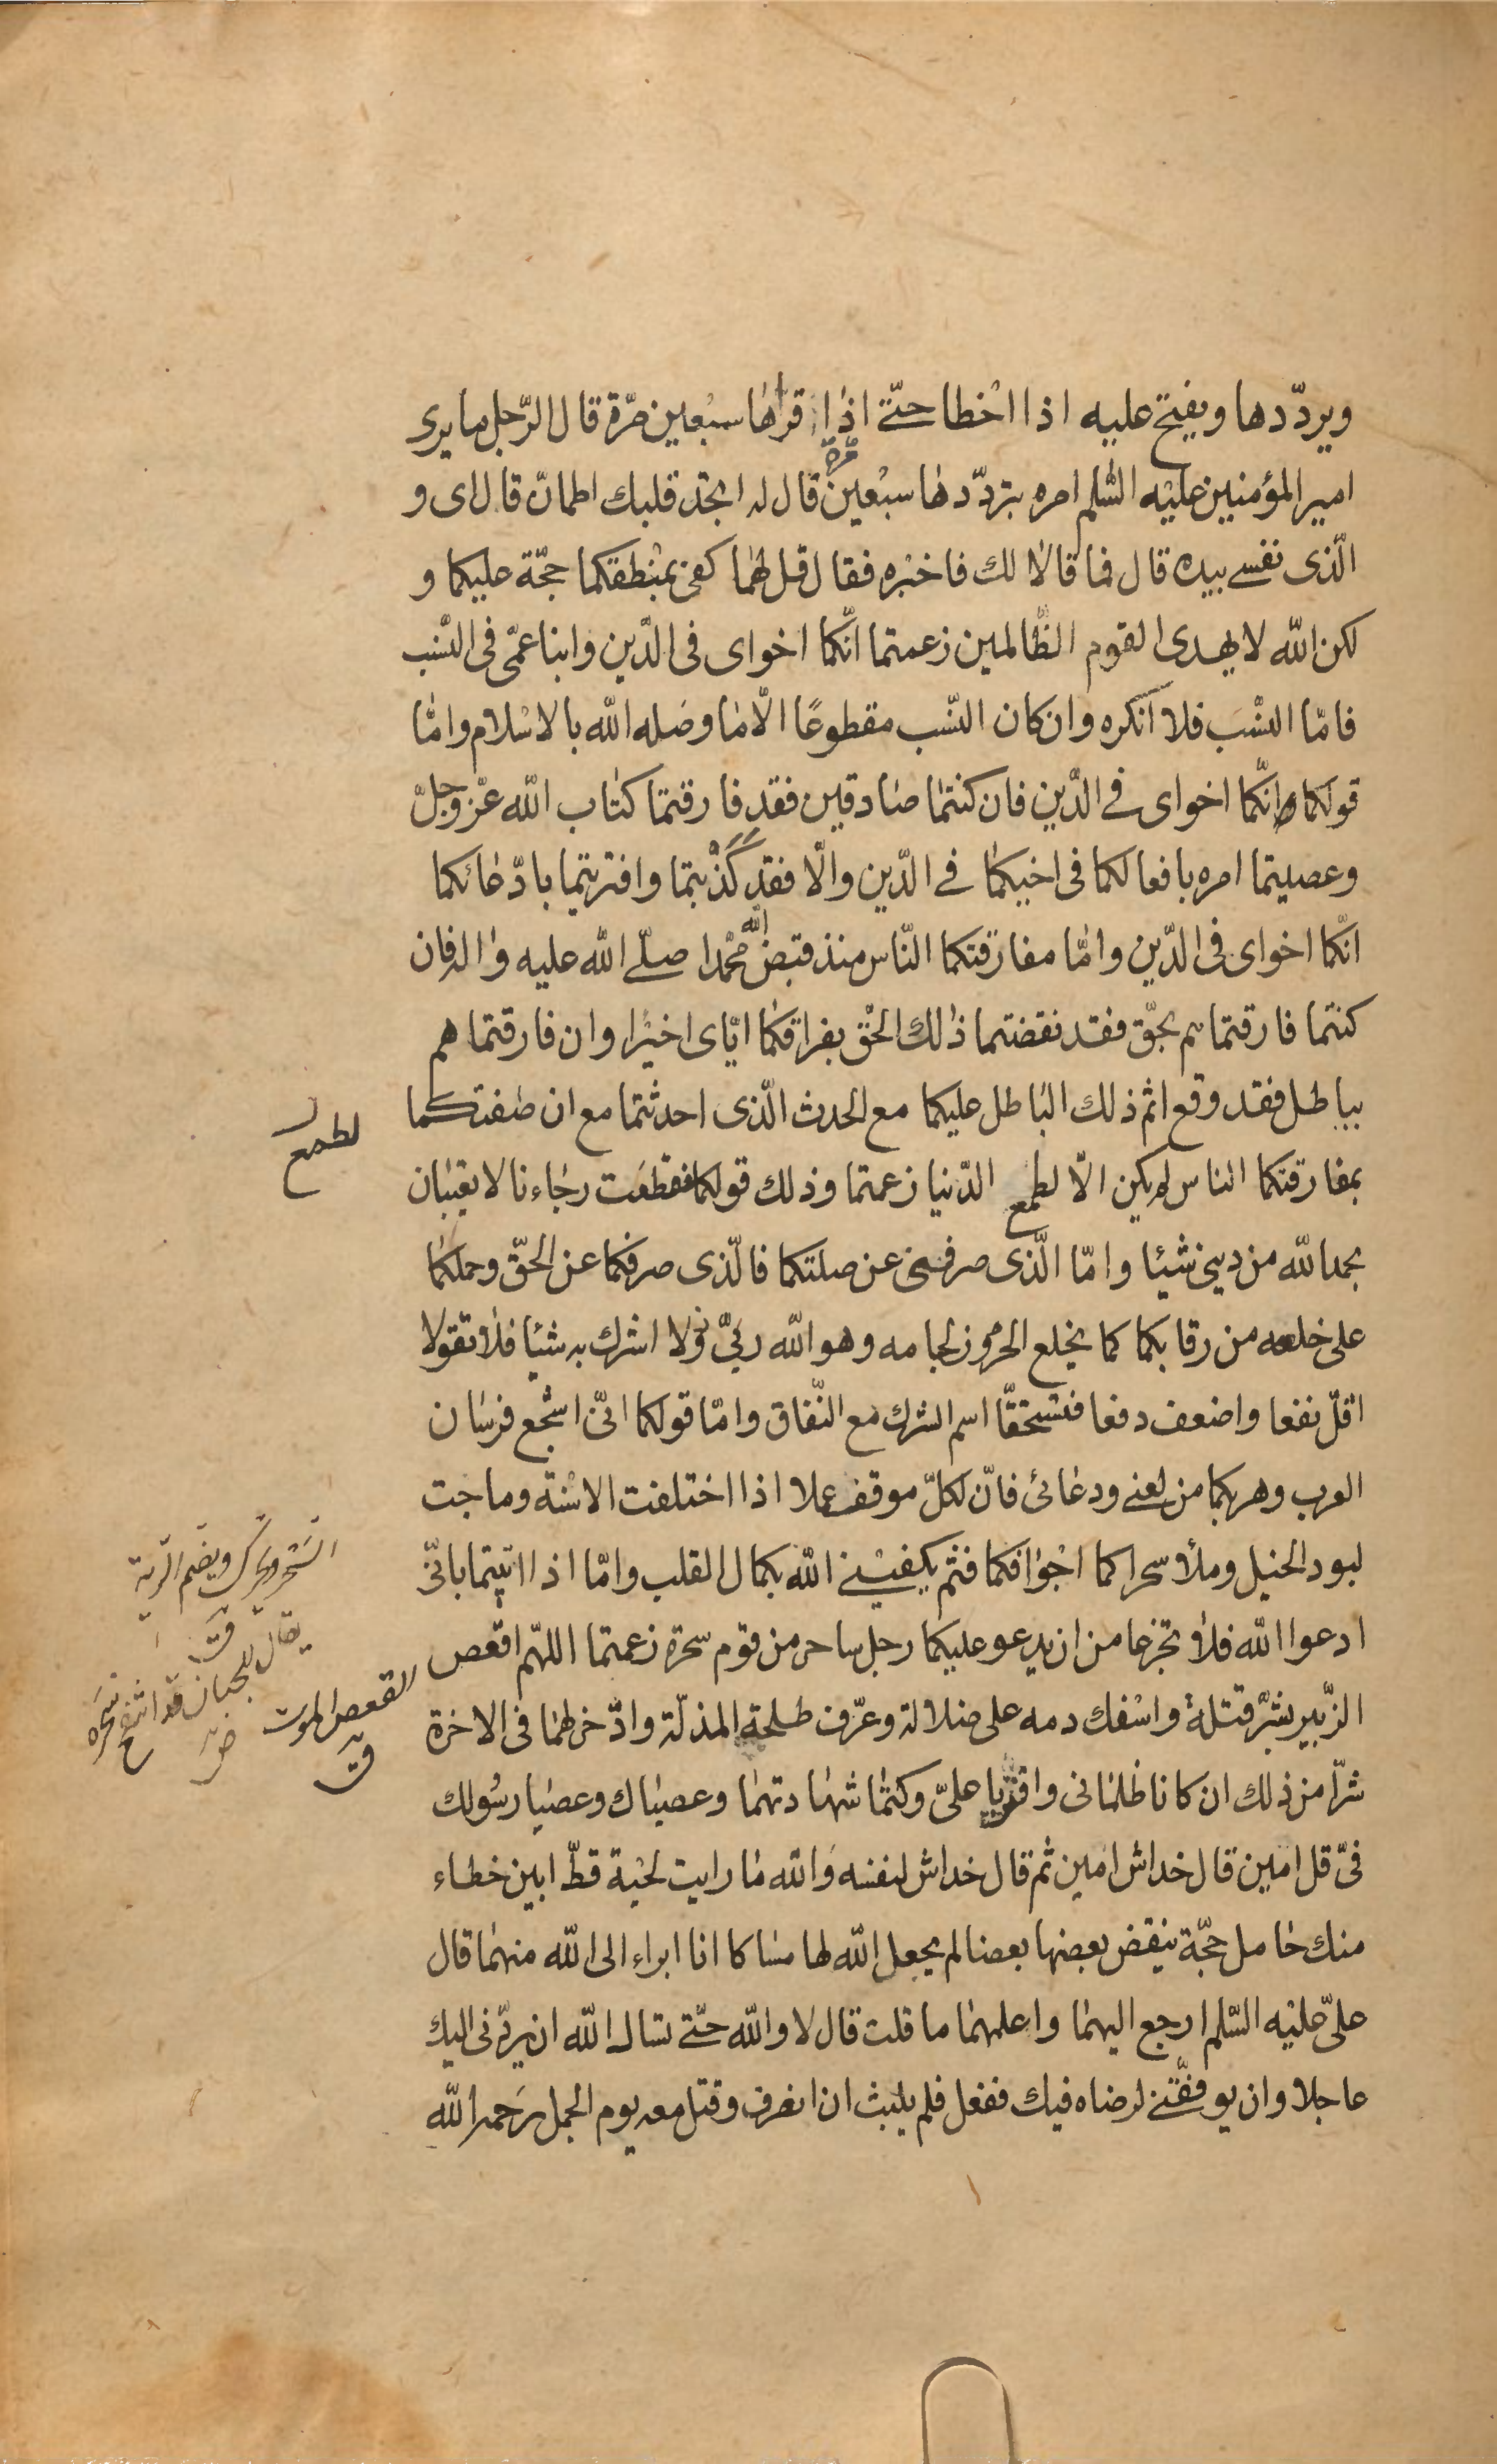 ويردّدها ويفتح عليه اذا اخطا حتّى اذا قراها سبعين مرّة قال الرّجل ما يرى
امير المؤمنين عليه السّلم امره بتردّدها سبعين مرّة قال له اتجد قلبك اطمانّ قال اى و
الّذى نفسى بيده قال فما قالا لك فاخبره فقال قل لهما كفى بمنطقكما حجّة عليكما و
لكن اللّه لا يهدى القوم الظّالمين زعمتما انّكما اخواى فى الدّين وابنا عمّى فى النّسب
فامّا النّسب فلا انكره وان كان النّسب مقطوعًا الّا ما وصله اللّه بالاسلام وامّا
قولكما انّكما اخواى فى الدّين فان كنتما صادقين فقد فارقتما كتاب اللّه عزّ وجلّ
وعصيتما امره بافعالكما فى اخيكما فى الدّين والّا فقد كذبتما وافتريتما بادّعائكما
انّكما اخواى فى الدّين وامّا مفارقتكما النّاس منذ قبض اللّه محمّدا صلّى اللّه عليه واله فان
كنتما فارقتماهم بحقّ فقد نقضتما ذلك الحقّ بفراقكما ايّاى اخيرا وان فارقتماهم
بباطل فقد وقع اثم ذلك الباطل عليكما مع الحدث الّذى احدثتما مع ان صفتكما
لطمع
بمفارقتكما الناس لم يكن الّا لطمع الدّنيا زعمتما وذلك قولكما فقطعت رجاءنا لا تعيبان
بحمد اللّه من دينى شيئا وامّا الّذى صرفنى عن صلتكما فالّذى صرفكما عن الحقّ وحملكما
على خلعه من رقابكما كما يخلع الحرون لجامه وهو اللّه ربّى لا اشرك به شيئا فلا تقولا
اقلّ نفعا واضعف دفعا فتستحقّا اسم الشرك مع النّفاق وامّا قولكما انّى اشجع فرسان
العرب وهربكما من لعنى ودعائى فانّ لكلّ موقف عملا اذا اختلفت الاسنّة وماجت
لبود الخيل وملأ سحراكما اجوافكما فثم يكفينى اللّه بكمال القلب وامّا اذا ابيتما بانّى
السَّحر ويحرّك ويضم الرية
ق
يقال للجبان قد انتفخ سَحره
ادعوا اللّه فلا تجزعا من ان يدعو عليكما رجل ساحر من قوم سحرة زعمتما اللهمّ اقعص
القعص الموت
ق
الزّبير بشرّ قتلة واسفك دمه على ضلالة وعرّف طلحة المذلّة وادّخر لهما فى الاخرة
شرّا من ذلك ان كانا ظلمانى وافتريا علىّ وكتما شهادتهما وعصياك وعصيا رسولك
فىّ قل امين قال خداش امين ثم قال خداش لنفسه واللّه ما رايت لحية قطّ ابين خطاء
منك حامل حجّة ينقض بعضها بعضا لم يجعل اللّه لها مساكا انا ابراء الى اللّه منهما قال
علىّ عليه السّلم ارجع اليهما واعلمهما ما قلت قال لا واللّه حتّى تسال اللّه ان يردّنى اليك
عاجلا وان يوفّقنى لرضاه فيك ففعل فلم يلبث ان انصرف وقتل معه يوم الجمل رحمه اللّه